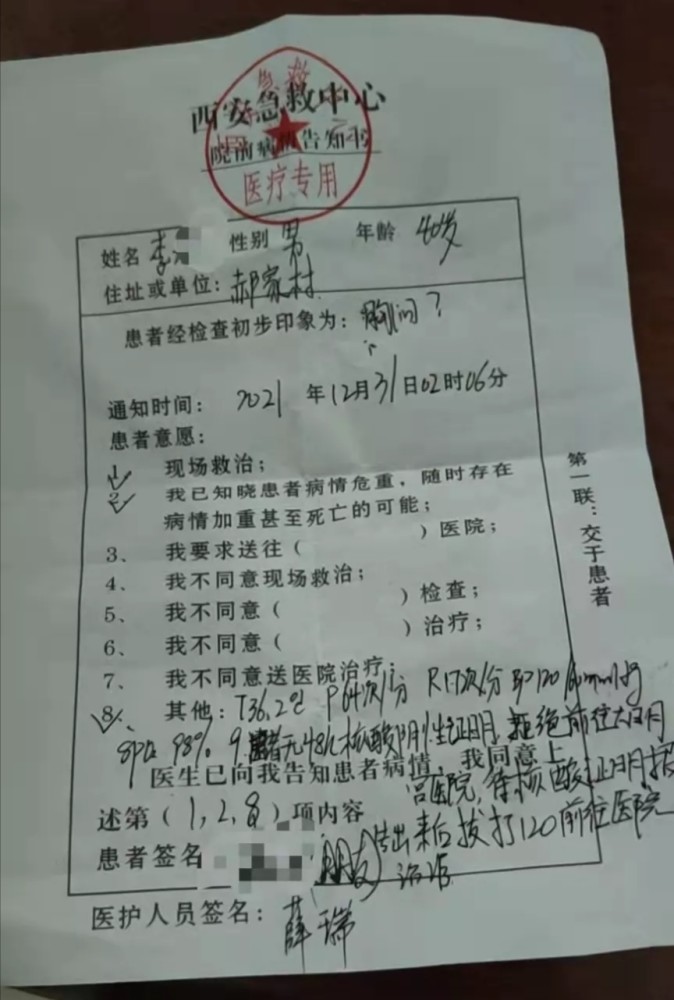 西安急救中心
院前病情告知书
医疗专用
姓名 李 性别 男 年龄 40岁
住址或单位：郝家村
患者经检查初步印象为：胸闷？
通知时间：2021年12月31日02时06分
患者意愿：
1、现场救治；
2、我已知晓患者病情危重，随时存在
病情加重甚至死亡的可能；
3、我要求送往（ ）医院；
4、我不同意现场救治；
5、我不同意（ ）检查；
6、我不同意（ ）治疗；
7、我不同意送医院治疗；
8、其他：T36.2℃ P64次/分 R17次/分 BP120/ mmHg
SPO2 98%. 患者无48h核酸阴性证明，拒绝前往大明
宫医院，待核酸证明报
告出来后拔打120前往医院
治疗
医生已向我告知患者病情，我同意上
述第（1,2,8）项内容
患者签名 （朋友）
医护人员签名：薛瑞
第一联：交于患者